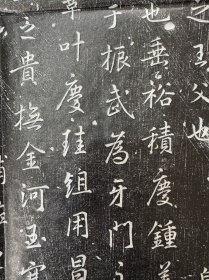 之王父也
也垂裕積慶鍾美
于振武為牙門
草叶慶珪組用昌
之貴撫金河玉塞